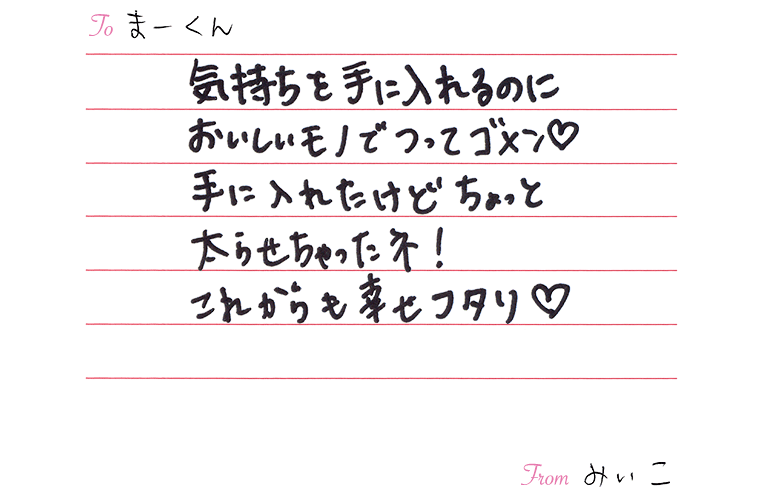 To まーくん
気持ちを手に入れるのに
おいしいモノでつってゴメン♡
手に入れたけどちょっと
太らせちゃったネ!
これからも幸せフタリ♡
From みぃこ